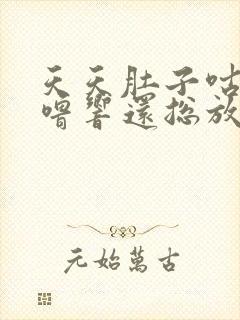 天天肚子咕
噜響還総放
元始萬古